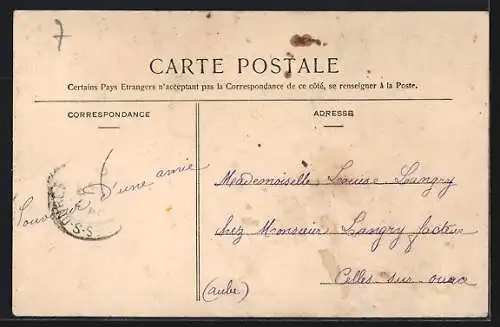 7
CARTE POSTALE
Certains Pays Etrangers n'acceptant pas la Correspondance de ce côté, se renseigner à la Poste.
CORRESPONDANCE
ADRESSE
Souvenir d'une amie
Mademoiselle Louise Langry
chez Monsieur Langry facteur
Celles sur ource
(aube)